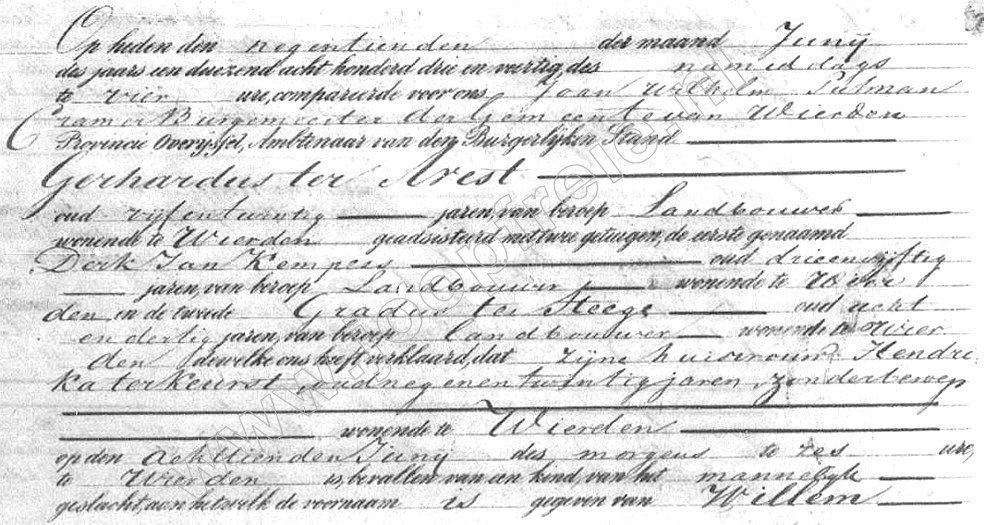 Op heden den negentienden der maand Junij
des jaars een duizend acht honderd drie en veertig, des namiddags
te vier ure, compareerde voor ons Joan Wilhelm Putman
Cramer Burgemeester der Gemeente van Wierden
Provincie Overijssel, Ambtenaar van den Burgerlijken Stand
Gerhardus ter Avest
oud vijfentwintig jaren, van beroep Landbouwer
wonende te Wierden geadsisteerd met twee getuigen, de eerste genaamd
Derk Jan Kempers oud drieenvijftig
jaren, van beroep Landbouwer wonende te Wier
den en de tweede Gradus ter Steege oud acht
en dertig jaren, van beroep landbouwer wonende te Wier
den dewelke ons heeft verklaard, dat zijne huisvrouw Hendri
ka ter Keurst, oud negenentwintig jaren, zonder beroep
wonende te Wierden
op den achttienden Junij des morgens te zes ure,
te Wierden is bevallen van een kind, van het mannelijk
geslacht, aan hetwelk de voornaam is gegeven van Willem